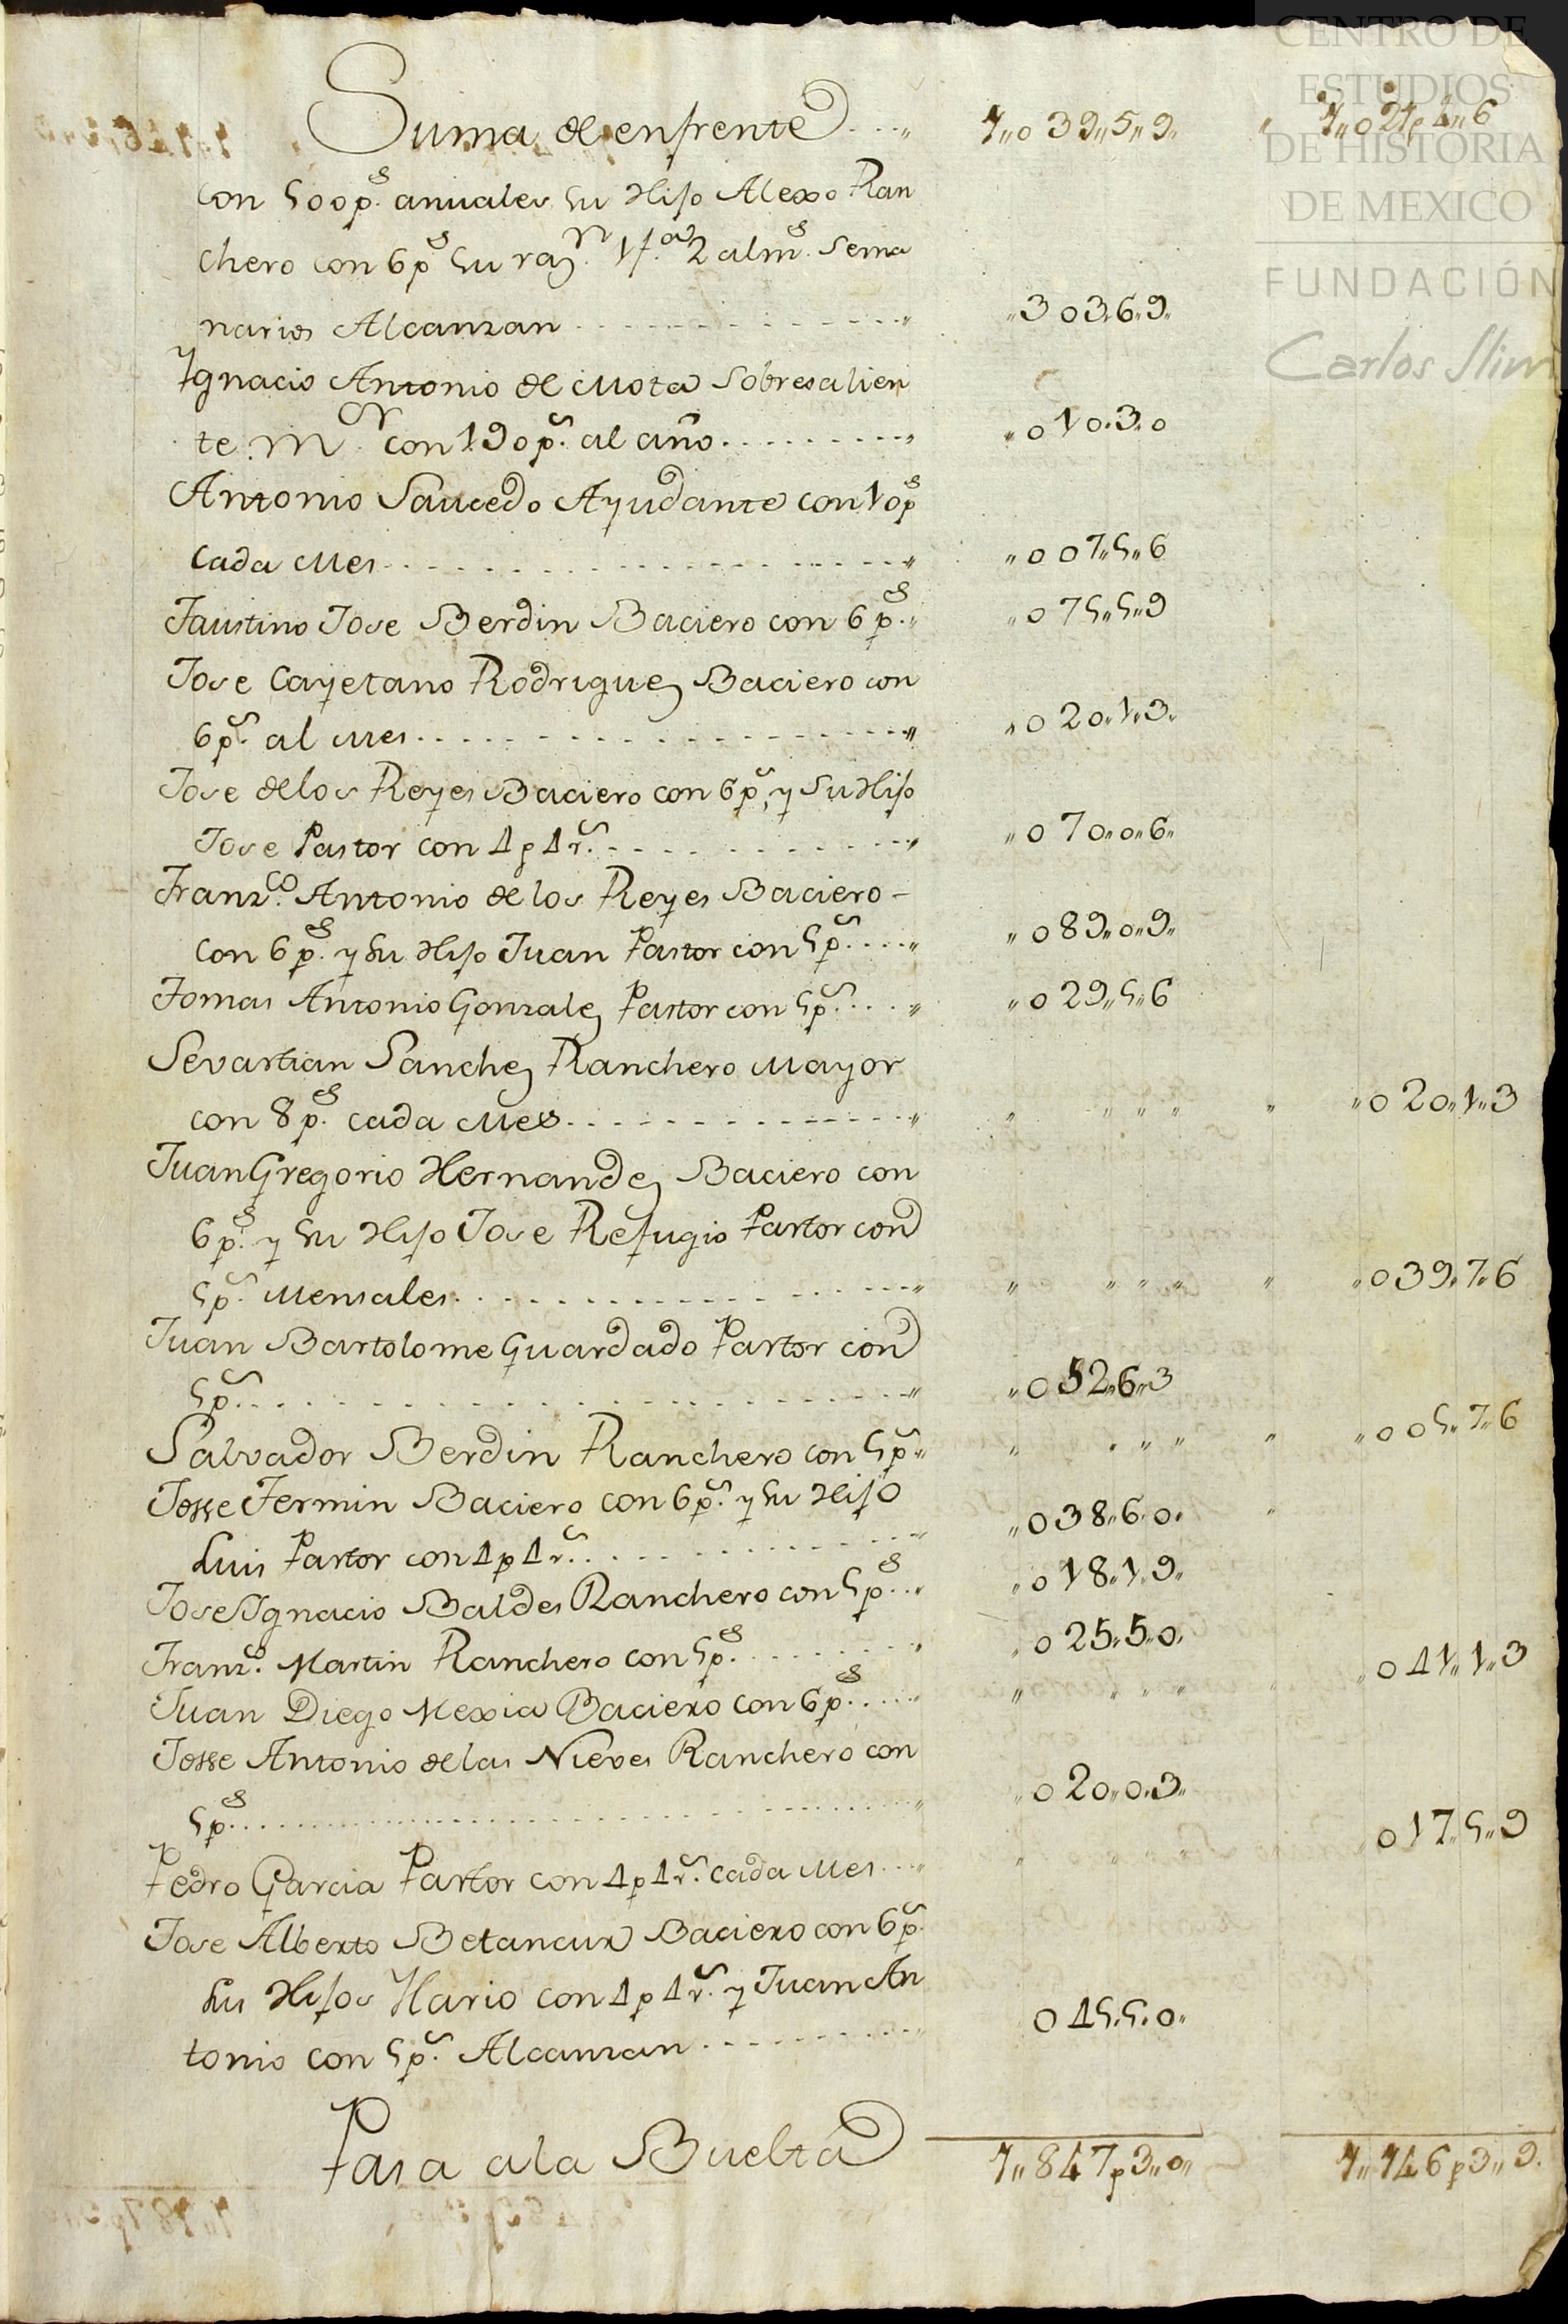 CENTRO DE
ESTUDIOS
DE HISTORIA
DE MEXICO
FUNDACIÓN
Carlos Slim
Suma de enfrente 1,,039,,5,,9 1,,021p4,,6
con 500p.s anuales su Hijo Alexo Ran
chero con 6p.s su raz.n 1f.a 2 alm.s Sema
narios Alcanzan 303,,6,,9
Ygnacio Antonio de Mota Sobresalien
te M.r con 190p.s al año 010,,3,,0
Antonio Saucedo Ayudante con 10p.s
Cada Mes 007,,5,,6
Faustino Jose Berdin Baciero con 6p.s 075,,5,,9
Jose Cayetano Rodriguez Baciero con
6p.s al mes 020,,1,,3
Jose de los Reyes Baciero con 6p.s y Su Hijo
Jose Pastor con 4p4r.s 070,,0,,6
Franz.co Antonio de los Reyes Baciero
con 6p.s y su Hijo Juan Pastor con 5p.s 089,,0,,9
Tomas Antonio Gonzalez Pastor con 5p.s 029,,5,,6
Sevastian Sanchez Ranchero Mayor
con 8p.s cada Mes 020,,1,,3
Juan Gregorio Hernandez Baciero con
6p.s y su Hijo Jose Refugio Pastor con
5p.s Mensales 039,,7,,6
Juan Bartolome Guardado Pastor con
5p.s 052,,6,,3
Salvador Berdin Ranchero con 5p.s 005,,7,,6
Josse Fermin Baciero con 6p.s y su Hijo
Luis Pastor con 4p4r.s 038,,6,,0
Jose Ygnacio Baldes Ranchero con 5p.s 018,,1,,9
Franz.co Martin Ranchero con 5p.s 025,,5,,0
Juan Diego Mexia Baciero con 6p.s 041,,1,,3
Josse Antonio de las Nieves Ranchero con
5p.s 020,,0,,3
Pedro Garcia Pastor con 4p4r.s cada Mes 017,,5,,9
Jose Alberto Betancur Baciero con 6p.s
sus Hijos Hario con 4p4r.s y Juan An
tonio con 5p.s Alcanzan 045,,5,,0
Pasa a la Buelta 1,,847p3,,0 1,,146p3,,9